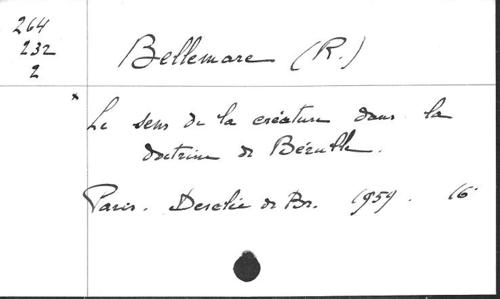 264
232
2
Bellemare (R.)
* Le sens de la créature dans la
doctrine de Bérulle.
Paris. Desclée de Br. 1959. 16°